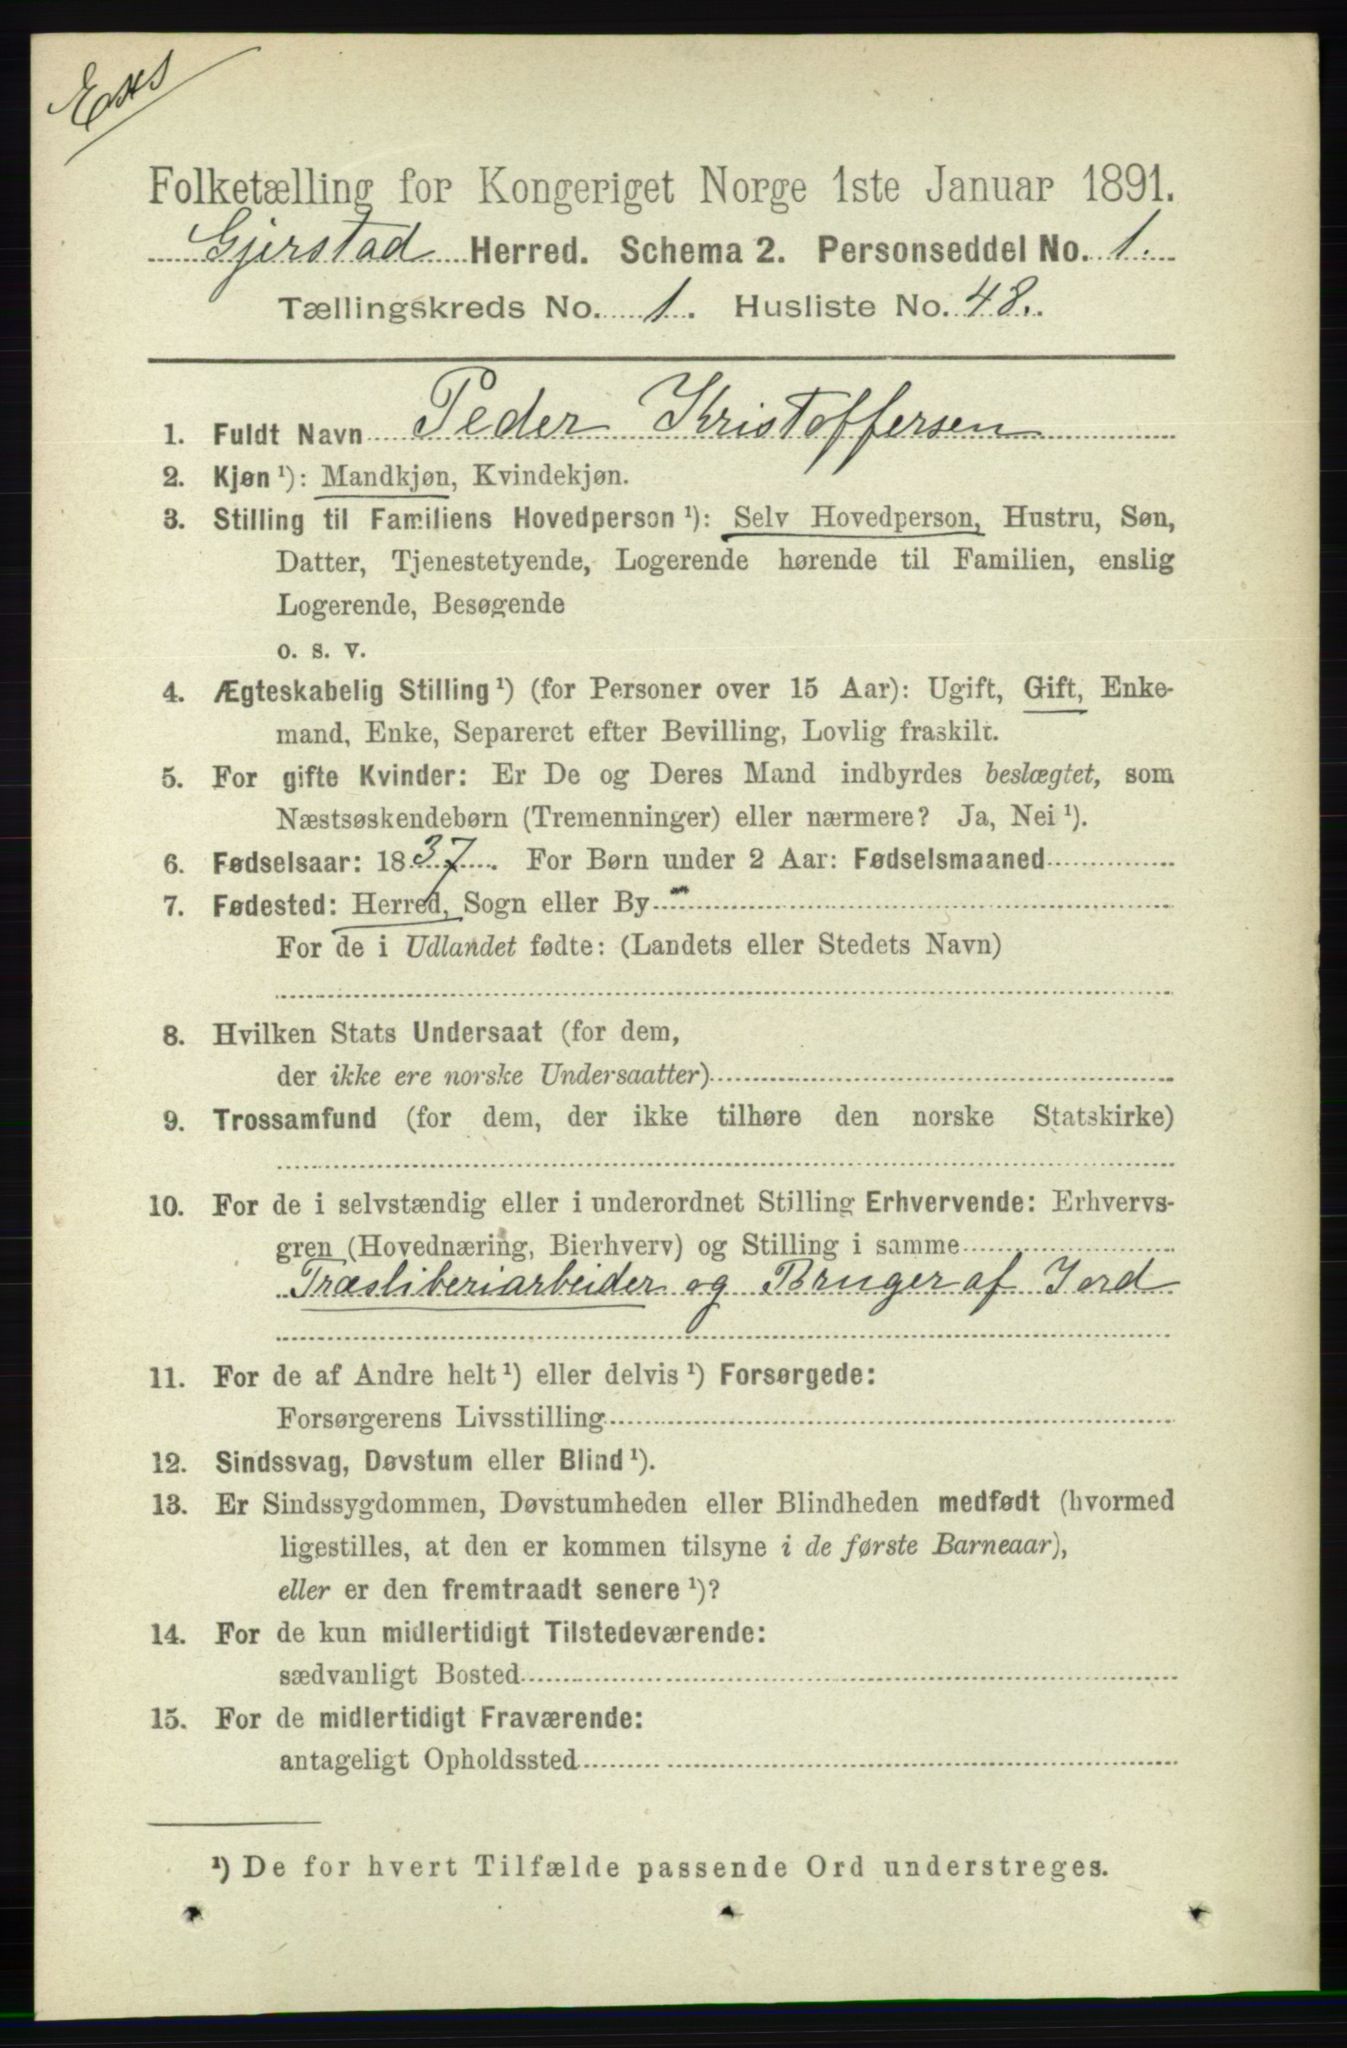 Folketælling for Kongeriget Norge 1ste Januar 1891.
Gjerstad Herred. Schema 2. Personseddel No. 1.
Tællingskreds No. 1. Husliste No. 48.
1. Fuldt Navn Peder Kristoffersen
2. Kjøn ¹): Mandkjøn, Kvindekjøn.
3. Stilling til Familiens Hovedperson ¹): Selv Hovedperson, Hustru, Søn,
Datter, Tjenestetyende, Logerende hørende til Familien, enslig
Logerende, Besøgende
o. s. v.
4. Ægteskabelig Stilling ¹) (for Personer over 15 Aar): Ugift, Gift, Enke-
mand, Enke, Separeret efter Bevilling, Lovlig fraskilt.
5. For gifte Kvinder: Er De og Deres Mand indbyrdes beslægtet, som
Næstsøskendebørn (Tremenninger) eller nærmere? Ja, Nei ¹).
6. Fødselsaar: 1837. For Børn under 2 Aar: Fødselsmaaned
7. Fødested: Herred, Sogn eller By -
For de i Udlandet fødte: (Landets eller Stedets Navn)
8. Hvilken Stats Undersaat (for dem,
der ikke ere norske Undersaatter)
9. Trossamfund (for dem, der ikke tilhøre den norske Statskirke)
10. For de i selvstændig eller i underordnet Stilling Erhvervende: Erhvervs-
gren (Hovednæring, Bierhverv) og Stilling i samme
Træsliberiarbeider og Bruger af Jord
11. For de af Andre helt ¹) eller delvis ¹) Forsørgede:
Forsørgerens Livsstilling
12. Sindssvag, Døvstum eller Blind ¹).
13. Er Sindssygdommen, Døvstumheden eller Blindheden medfødt (hvormed
ligestilles, at den er kommen tilsyne i de første Barneaar),
eller er den fremtraadt senere ¹)?
14. For de kun midlertidigt Tilstedeværende:
sædvanligt Bosted
15. For de midlertidigt Fraværende:
antageligt Opholdssted
¹) De for hvert Tilfælde passende Ord understreges.